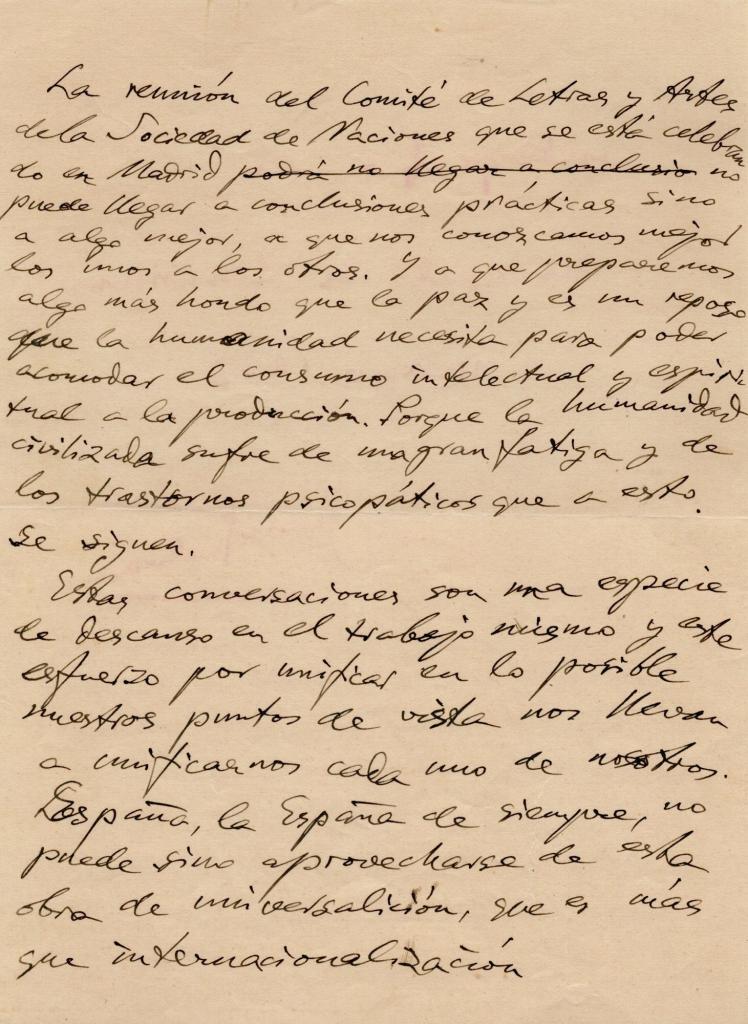 La reunión del Comité de Letras y Artes
de la Sociedad de Naciones que se está celebran
do en Madrid podrá no llegar a conclusio no
puede llegar a conclusiones prácticas sino
a algo mejor, a que nos conozcamos mejor
los unos a los otros. Y a que preparemos
algo más hondo que la paz y es un reposo
que la humanidad necesita para poder
acomodar el consumo intelectual y espiri
tual a la producción. Porque la humanidad
civilizada sufre de una gran fatiga y de
los trastornos psicopáticos que a esto
se siguen.
Estas conversaciones son una especie
de descanso en el trabajo mismo y este
esfuerzo por unificar en lo posible
nuestros puntos de vista nos llevan
a unificarnos cada uno de nosotros.
España, la España de siempre, no
puede sino aprovecharse de esta
obra de universalición, que es más
que internacionalización